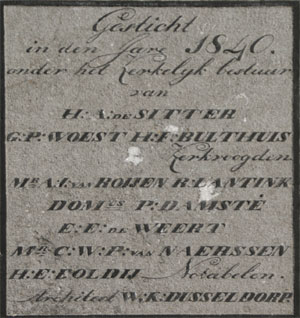 Gesticht
in den Jare 1840.
onder het Kerkelyk bestuur
van
H: A: DE SITTER
G: P: WOEST H: F: BULTHUIS
Kerkvoogden
Mr A: I: van ROIJEN R: LANTINK
DOMNS P: DAMSTÉ
E: E: DE WEERT
Mr C: W: P: van NAERSSEN
H: E: EOLDIJ Notabelen.
Architect W: K: DUSSELDORP.